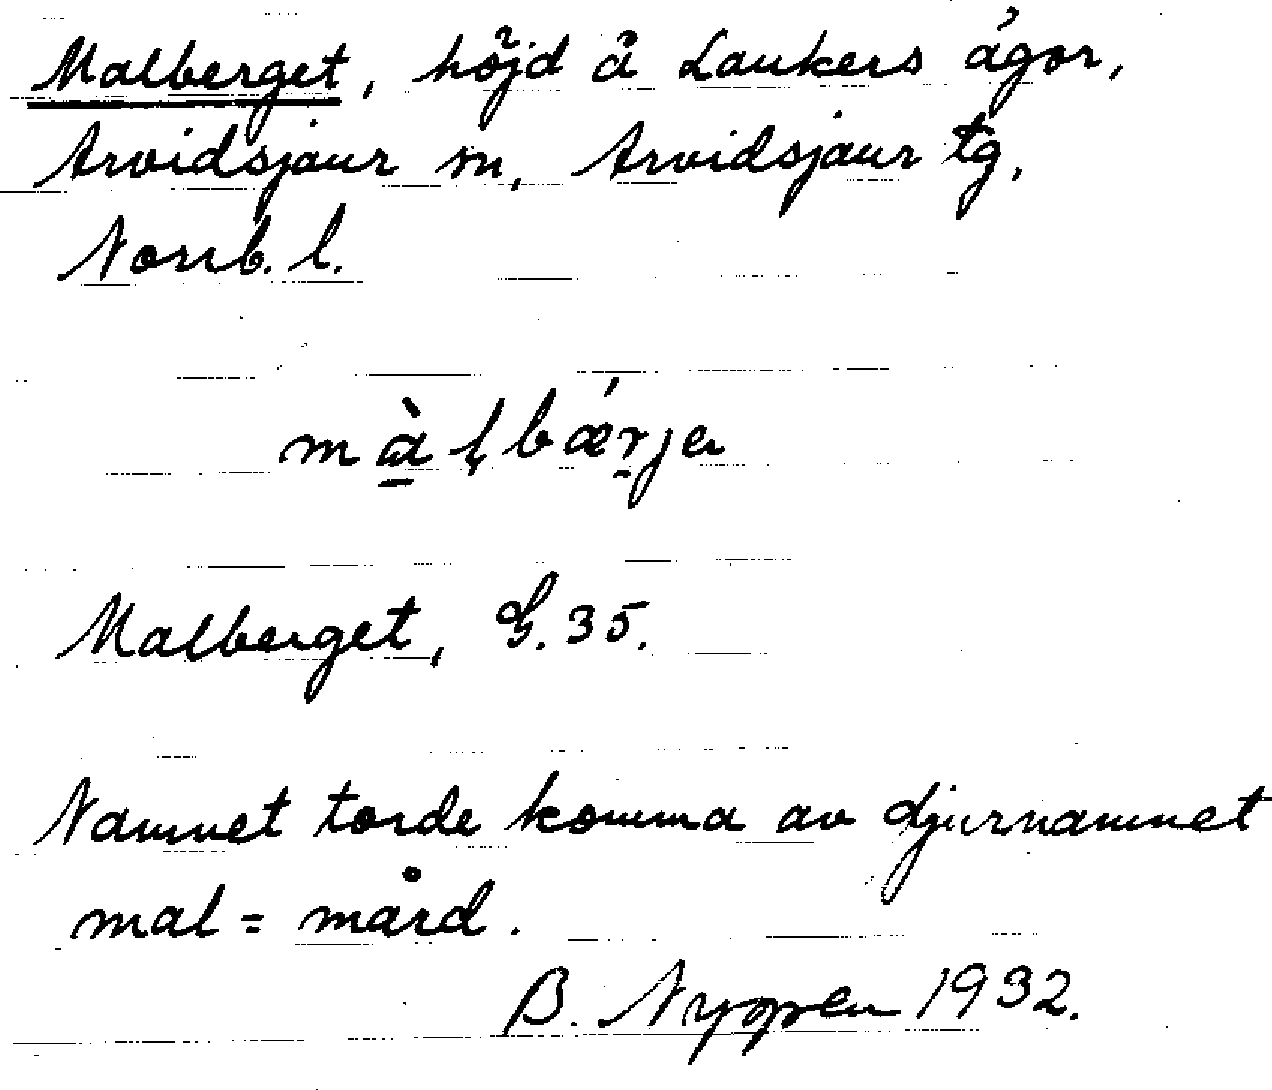 Malberget, höjd å Laukers ägor,
Arvidsjaur sn, Arvidsjaur tg,
Norrb. l.
màḷbǽrje
Malberget, G. 35.
Namnet torde komma av djurnamnet
mal = mård.
B. Nyppen 1932.